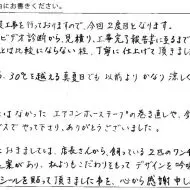 由にお書きください。
装工事を行っておりますので、今回2度目となります。
ビデオ診断から、見積り、工事完了報告書に至るまで
とは比較にならない程、丁寧に仕上げて頂きました
、30℃を越える真夏日でも以前よりかなり涼しく
はなかった エアコンホーステープの巻き直しや、
ビスで やって下さり、ありがとうございました。
におきましては、店長さんから、飼っている2匹のワン
た案があり、私よりもこだわりをもってデザインを吟
シールを貼って頂きました事を、心から感謝申し